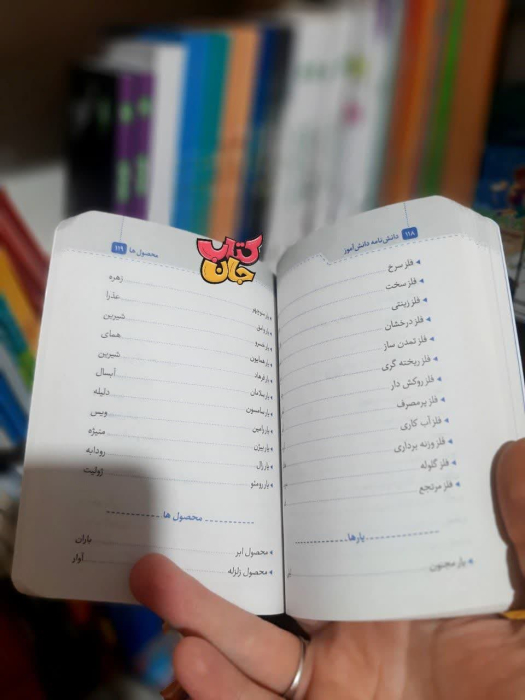 ۱۱۸ دانش‌نامه دانش‌آموز
فلز سرخ
فلز سخت
فلز زینتی
فلز درخشان
فلز تمدن ساز
فلز ریخته گری
فلز روکش دار
فلز پرمصرف
فلز آب کاری
فلز وزنه برداری
فلز گلوله
فلز مرتجع
یارها
یار مجنون
کتاب
جان
محصول ها ۱۱۹
زهره
عذرا
یار خسرو شیرین
یار همایون همای
یار فرهاد شیرین
یار سلامان آبسال
یار سامسون دلیله
یار رامین ویس
یار بیژن منیژه
یار زال رودابه
یار رومئو ژولیت
محصول ها
محصول ابر باران
محصول زلزله آوار